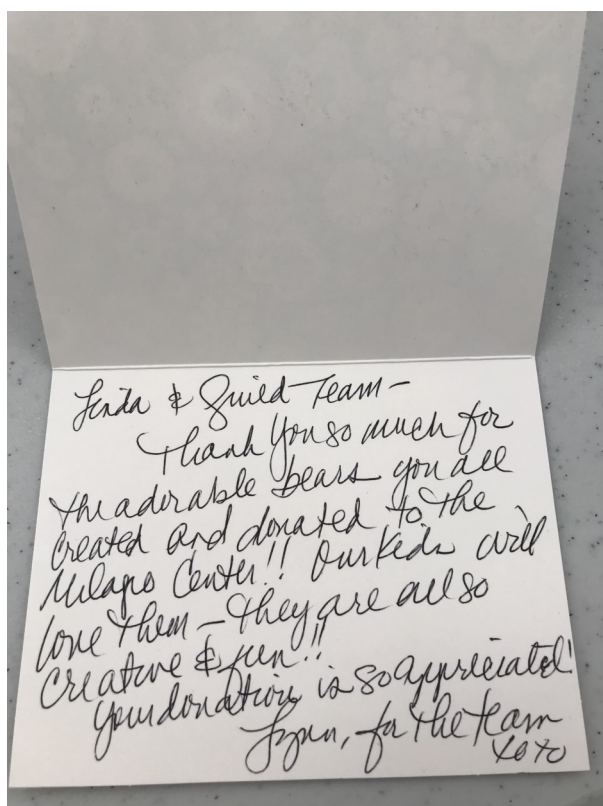 Linda & Guild Team -
Thank you so much for
the adorable bears you all
created and donated to the
Milagro Center!! Our kids will
love them - they are all so
creative & fun!!
Your donation is so appreciated!
Lynn, for the team
xoxo